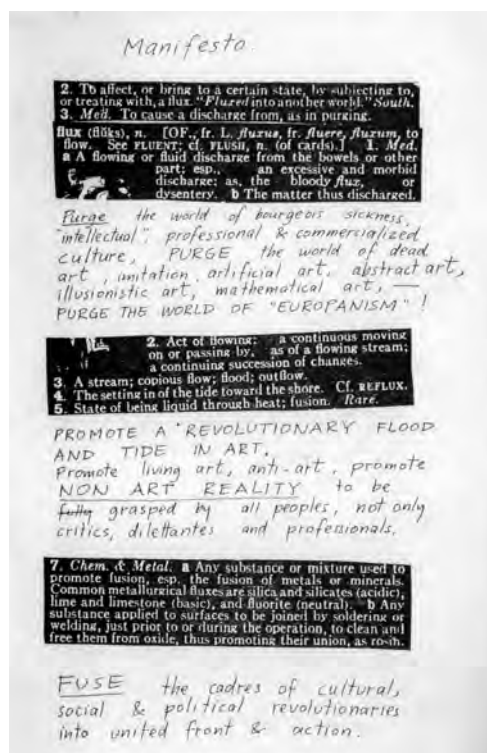 Manifesto
2. To affect, or bring to a certain state, by subjecting to,
or treating with, a flux. "Fluxed into another world." South.
3. Med. To cause a discharge from, as in purging.
flux (flŭks), n. [OF., fr. L. fluxus, fr. fluere, fluxum, to
flow. See FLUENT; cf. FLUSH, n. (of cards).] 1. Med.
a A flowing or fluid discharge from the bowels or other
part; esp., an excessive and morbid
discharge; as, the bloody flux, or
dysentery. b The matter thus discharged.
Purge the world of bourgeois sickness,
"intellectual", professional & commercialized
culture, PURGE the world of dead
art, imitation, artificial art, abstract art,
illusionistic art, mathematical art, —
PURGE THE WORLD OF "EUROPANISM"!
2. Act of flowing: a continuous moving
on or passing by, as of a flowing stream;
a continuing succession of changes.
3. A stream; copious flow; flood; outflow.
4. The setting in of the tide toward the shore. Cf. REFLUX.
5. State of being liquid through heat; fusion. Rare.
PROMOTE A REVOLUTIONARY FLOOD
AND TIDE IN ART,
Promote living art, anti-art, promote
NON ART REALITY to be
fully grasped by all peoples, not only
critics, dilettantes and professionals.
7. Chem. & Metal. a Any substance or mixture used to
promote fusion, esp. the fusion of metals or minerals.
Common metallurgical fluxes are silica and silicates (acidic),
lime and limestone (basic), and fluorite (neutral). b Any
substance applied to surfaces to be joined by soldering or
welding, just prior to or during the operation, to clean and
free them from oxide, thus promoting their union, as rosin.
FUSE the cadres of cultural,
social & political revolutionaries
into united front & action.